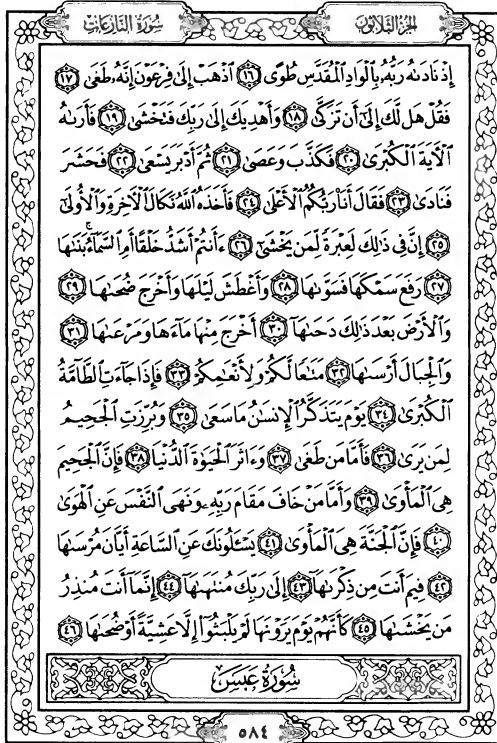 سُورَةُ النَّازِعَاتِ الجُزْءُ الثَّلَاثُونَ
إِذْ نَادَىٰهُ رَبُّهُۥ بِٱلْوَادِ ٱلْمُقَدَّسِ طُوًى ١٦ ٱذْهَبْ إِلَىٰ فِرْعَوْنَ إِنَّهُۥ طَغَىٰ ١٧
فَقُلْ هَل لَّكَ إِلَىٰٓ أَن تَزَكَّىٰ ١٨ وَأَهْدِيَكَ إِلَىٰ رَبِّكَ فَتَخْشَىٰ ١٩ فَأَرَىٰهُ
ٱلْـَٔايَةَ ٱلْكُبْرَىٰ ٢٠ فَكَذَّبَ وَعَصَىٰ ٢١ ثُمَّ أَدْبَرَ يَسْعَىٰ ٢٢ فَحَشَرَ
فَنَادَىٰ ٢٣ فَقَالَ أَنَا۠ رَبُّكُمُ ٱلْأَعْلَىٰ ٢٤ فَأَخَذَهُ ٱللَّهُ نَكَالَ ٱلْـَٔاخِرَةِ وَٱلْأُولَىٰٓ
٢٥ إِنَّ فِى ذَٰلِكَ لَعِبْرَةً لِّمَن يَخْشَىٰٓ ٢٦ ءَأَنتُمْ أَشَدُّ خَلْقًا أَمِ ٱلسَّمَآءُ ۚ بَنَىٰهَا
٢٧ رَفَعَ سَمْكَهَا فَسَوَّىٰهَا ٢٨ وَأَغْطَشَ لَيْلَهَا وَأَخْرَجَ ضُحَىٰهَا ٢٩
وَٱلْأَرْضَ بَعْدَ ذَٰلِكَ دَحَىٰهَآ ٣٠ أَخْرَجَ مِنْهَا مَآءَهَا وَمَرْعَىٰهَا ٣١
وَٱلْجِبَالَ أَرْسَىٰهَا ٣٢ مَتَـٰعًا لَّكُمْ وَلِأَنْعَـٰمِكُمْ ٣٣ فَإِذَا جَآءَتِ ٱلطَّآمَّةُ
ٱلْكُبْرَىٰ ٣٤ يَوْمَ يَتَذَكَّرُ ٱلْإِنسَـٰنُ مَا سَعَىٰ ٣٥ وَبُرِّزَتِ ٱلْجَحِيمُ
لِمَن يَرَىٰ ٣٦ فَأَمَّا مَن طَغَىٰ ٣٧ وَءَاثَرَ ٱلْحَيَوٰةَ ٱلدُّنْيَا ٣٨ فَإِنَّ ٱلْجَحِيمَ
هِىَ ٱلْمَأْوَىٰ ٣٩ وَأَمَّا مَنْ خَافَ مَقَامَ رَبِّهِۦ وَنَهَى ٱلنَّفْسَ عَنِ ٱلْهَوَىٰ
٤٠ فَإِنَّ ٱلْجَنَّةَ هِىَ ٱلْمَأْوَىٰ ٤١ يَسْـَٔلُونَكَ عَنِ ٱلسَّاعَةِ أَيَّانَ مُرْسَىٰهَا
٤٢ فِيمَ أَنتَ مِن ذِكْرَىٰهَآ ٤٣ إِلَىٰ رَبِّكَ مُنتَهَىٰهَآ ٤٤ إِنَّمَآ أَنتَ مُنذِرُ
مَن يَخْشَىٰهَا ٤٥ كَأَنَّهُمْ يَوْمَ يَرَوْنَهَا لَمْ يَلْبَثُوٓا۟ إِلَّا عَشِيَّةً أَوْ ضُحَىٰهَا ٤٦
سُورَةُ عَبَسَ
٥٨٤